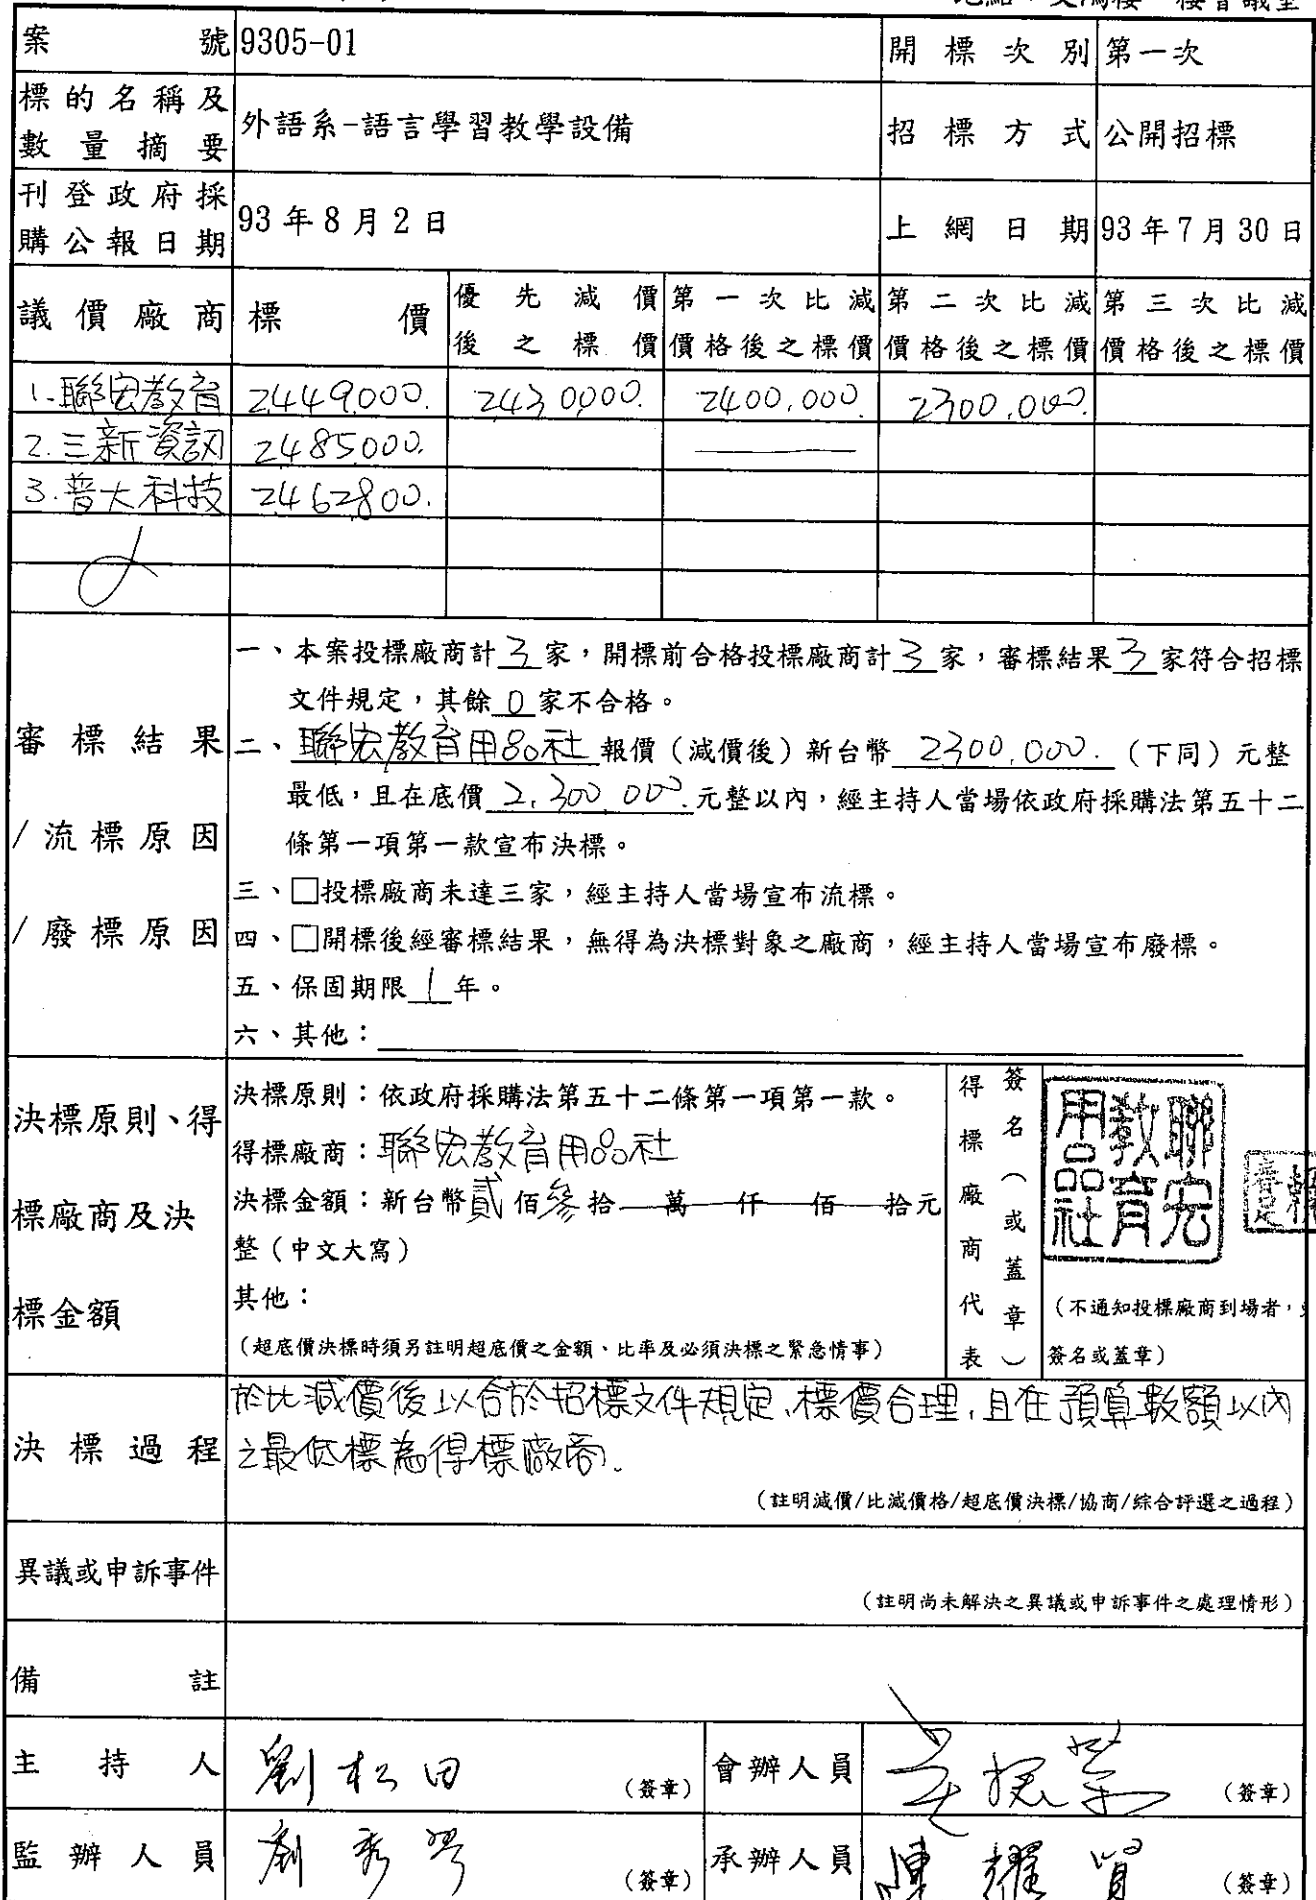 案號 9305-01 開標次別 第一次
標的名稱及數量摘要 外語系-語言學習教學設備 招標方式 公開招標
刊登政府採購公報日期 93年8月2日 上網日期 93年7月30日
議價廠商 標價 優先減價後之標價 第一次比減價格後之標價 第二次比減價格後之標價 第三次比減價格後之標價
1.聯宏教育 2449000. 2430000. 2400,000. 2300,000.
2.三新資訊 2485000.
3.普大科技 2462800.
審標結果/流標原因/廢標原因
一、本案投標廠商計3家,開標前合格投標廠商計3家,審標結果3家符合招標
文件規定,其餘0家不合格。
二、聯宏教育用品社報價(減價後)新台幣2300,000.(下同)元整
最低,且在底價2,300,000.元整以內,經主持人當場依政府採購法第五十二
條第一項第一款宣布決標。
三、□投標廠商未達三家,經主持人當場宣布流標。
四、□開標後經審標結果,無得為決標對象之廠商,經主持人當場宣布廢標。
五、保固期限1年。
六、其他:
決標原則、得標廠商及決標金額
決標原則:依政府採購法第五十二條第一項第一款。
得標廠商:聯宏教育用品社
決標金額:新台幣貳佰參拾萬仟佰拾元
整(中文大寫)
其他:
(超底價決標時須另註明超底價之金額、比率及必須決標之緊急情事)
得標廠商代表
簽名(或蓋章)
聯宏教育用品社
(不通知投標廠商到場者,
簽名或蓋章)
決標過程
於比減價後以合於招標文件規定,標價合理,且在預算數額以內
之最低標為得標廠商.
(註明減價/比減價格/超底價決標/協商/綜合評選之過程)
異議或申訴事件
(註明尚未解決之異議或申訴事件之處理情形)
備註
主持人 劉松田 (簽章) 會辦人員 (簽章)
監辦人員 劉秀琴 (簽章) 承辦人員 陳耀賢 (簽章)